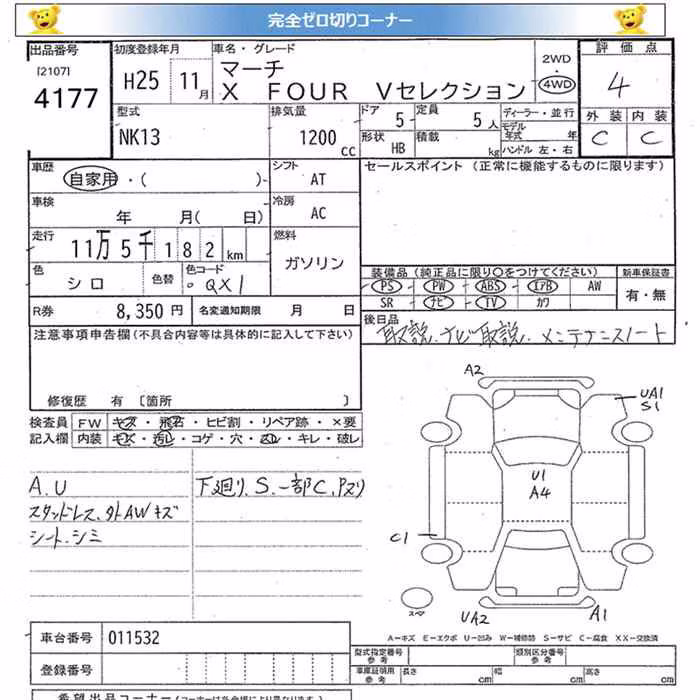 完全ゼロ切りコーナー
出品番号 初度登録年月 車名・グレード 評価点
[2107]
4177
H25 11月
マーチ
X FOUR Vセレクション
2WD
4WD
4
型式 排気量 ドア 定員 ディーラー・並行 外装 内装
NK13 1200 CC
5 5人 モデル年式 年
形状 HB 積載 kg ハンドル 左・右
C C
車歴 自家用・( )- シフト AT
セールスポイント (正常に機能するものに限ります)
車検 年 月( 日) 冷房 AC
走行 11万5千182km 燃料 ガソリン
色 シロ 色替 色コード QX1
装備品 (純正品に限り○をつけてください) 新車保証書
PS PW ABS エアB AW 有・無
SR ナビ TV カワ
R券 8,350円 名変通知期限 月 日
後日品 取説.ナビ取説.メンテナンスノート
注意事項申告欄(不具合内容等は具体的に記入して下さい)
修復歴 有 〔箇所 〕
検査員 FW キズ・飛石・ヒビ割・リペア跡・×要
記入欄 内装 キズ・汚レ・コゲ・穴・スレ・キレ・破レ
A.U 下廻り.S.一部C.Pヌリ
スタンドレス.外AWキズ
シート.シミ
A2
UA1
S1
U1
A4
C1
UA2
A1
スペア
A-キズ E-エクボ U-凹み W-補修跡 S-サビ C-腐食 XX-交換済
車台番号 011532
型式指定番号 参考 類別区分番号 参考
登録番号
車庫証明用 参考 長さ cm 幅 cm 高さ cm
希望出品コーナー(コーナーは各会場により異なります)